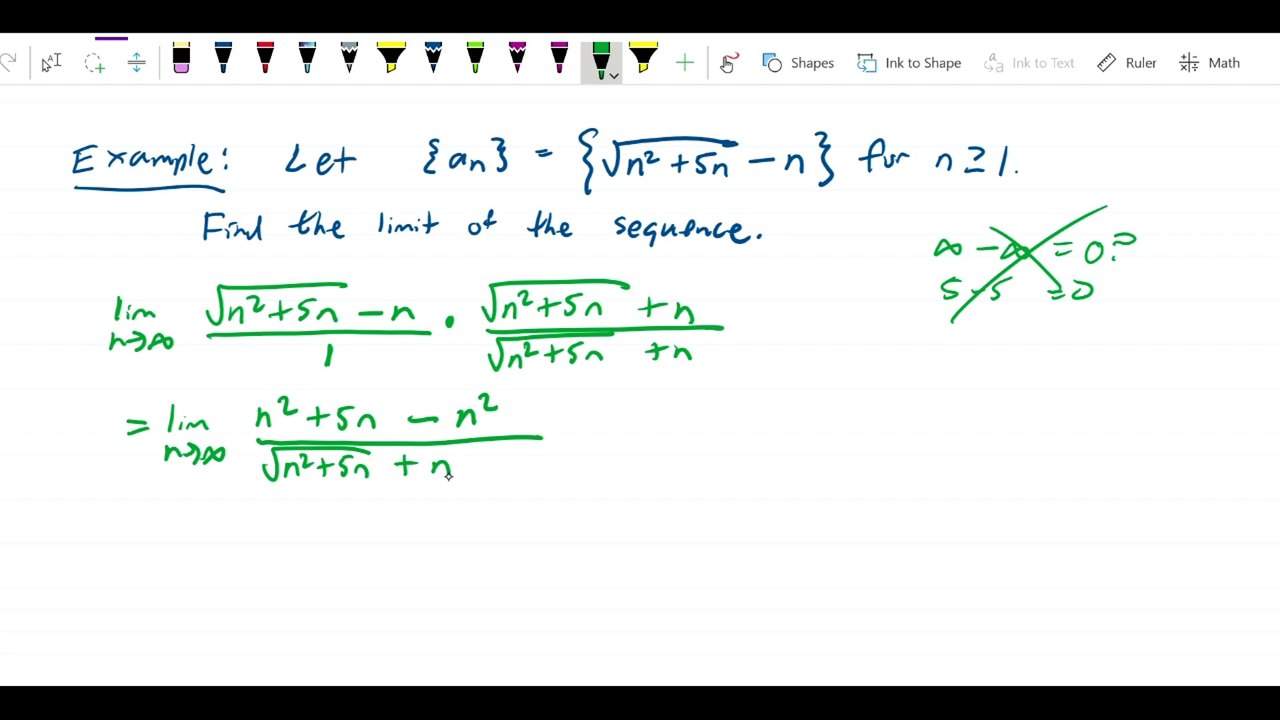 Shapes Ink to Shape Ink to Text Ruler Math
Example: Let {aₙ} = {√(n² + 5n) − n} for n ≥ 1.
Find the limit of the sequence.
∞ − ∞ = 0?
5 − 5 = 0
lim n→∞ (√(n²+5n) − n)/1 · (√(n²+5n) + n)/(√(n²+5n) + n)
= lim n→∞ (n² + 5n − n²)/(√(n²+5n) + n)